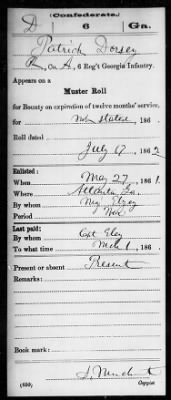 (Confederate.)
D 6 Ga.
Patrick Dorsey
Co. A, 6 Reg't Georgia Infantry.
Appears on a
Muster Roll
for Bounty on expiration of twelve months' service,
for not stated, 186 .
Roll dated
July 17, 1862
Enlisted:
When May 27, 1861.
Where Atlanta Ga.
By whom
Period War
Last paid:
By whom Cpt
To what time Mch 1, 186 .
Present or absent Present
Remarks:
Book mark:
(499) Copyist